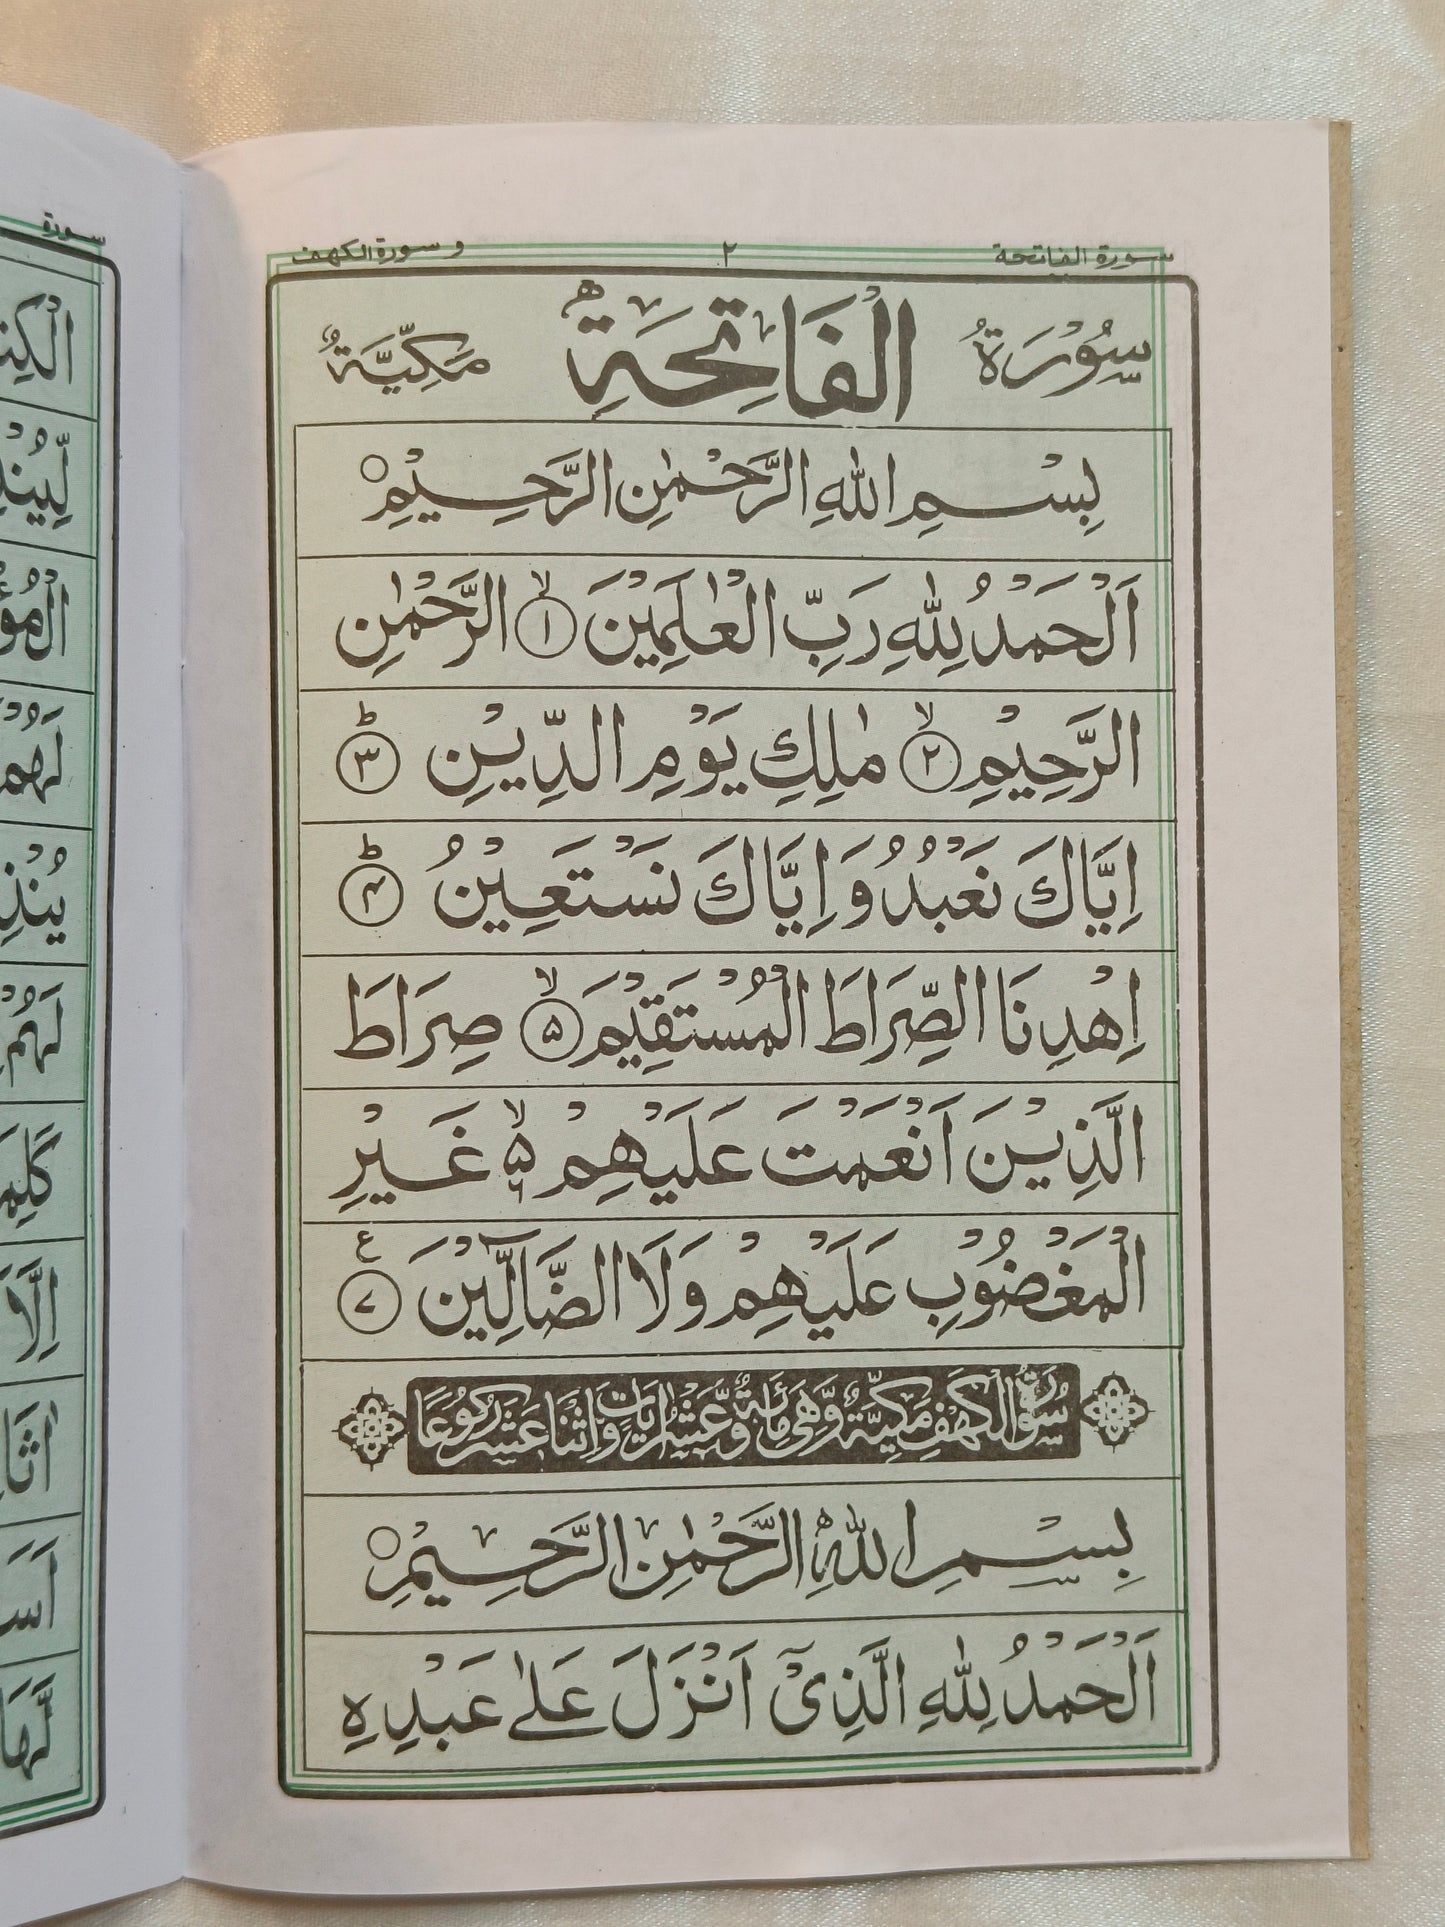 سورة الفاتحة ٢ و سورة الكهف
سُوْرَةُ الْفَاتِحَةِ مَكِّيَّةٌ
بِسْمِ اللّٰهِ الرَّحْمٰنِ الرَّحِيْمِ ○
اَلْحَمْدُ لِلّٰهِ رَبِّ الْعٰلَمِيْنَ ۙ﴿۱﴾ الرَّحْمٰنِ
الرَّحِيْمِ ۙ﴿۲﴾ مٰلِكِ يَوْمِ الدِّيْنِ ؕ﴿۳﴾
اِيَّاكَ نَعْبُدُ وَاِيَّاكَ نَسْتَعِيْنُ ؕ﴿۴﴾
اِهْدِنَا الصِّرَاطَ الْمُسْتَقِيْمَ ۙ﴿۵﴾ صِرَاطَ
الَّذِيْنَ اَنْعَمْتَ عَلَيْهِمْ ۙ۵ ۶ غَيْرِ
الْمَغْضُوْبِ عَلَيْهِمْ وَلَا الضَّآلِّيْنَ ﴿۷﴾ ع
سُوْرَةُ الْكَهْفِ مَكِّيَّةٌ وَّهِيَ مِائَةٌ وَّعَشْرُ اٰيَاتٍ وَّاِثْنَا عَشَرَ رُكُوْعًا
بِسْمِ اللّٰهِ الرَّحْمٰنِ الرَّحِيْمِ ○
اَلْحَمْدُ لِلّٰهِ الَّذِيْۤ اَنْزَلَ عَلٰى عَبْدِهِ
سورة
لَهُمْ
اِلَّا